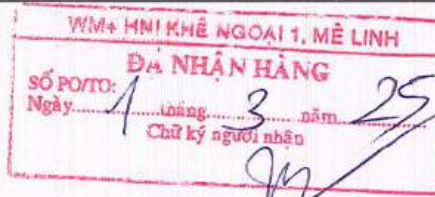 WM+ HNI KHÊ NGOẠI 1, MÊ LINH
ĐÃ NHẬN HÀNG
SỐ PO/TO:
Ngày 1 tháng 3 năm 25
Chữ ký người nhận